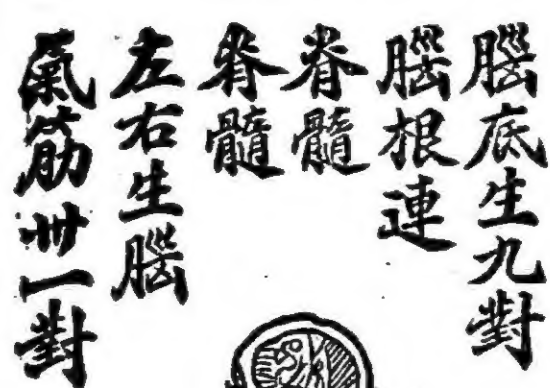 腦底生九對
腦根連
脊髓
脊髓
左右生腦
氣筋卅一對